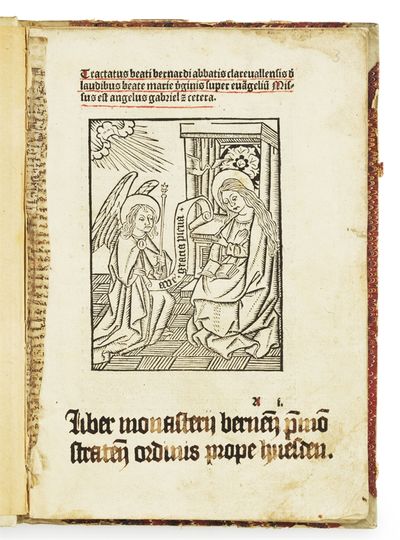 Tractatus beati bernardi abbatis clareuallensis d̄
laudibus beate marie v̄ginis super euāgeliū Mis-
sus est angelus gabriel ⁊ cetera.
aue gracia plena
A s.
Liber monasterij berneñ p̄mō
strateñ ordinis prope huesden.